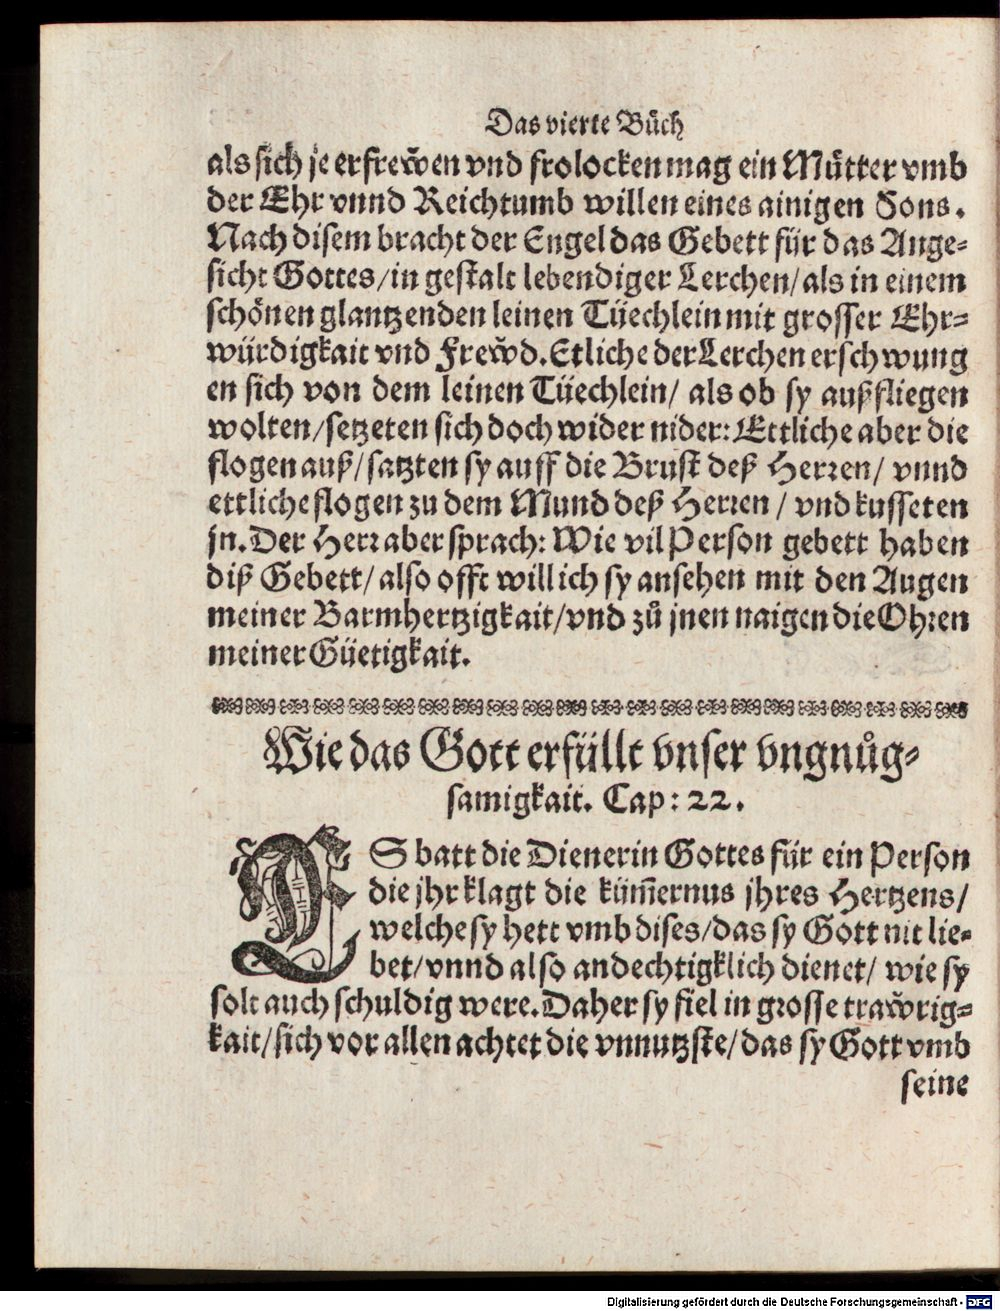 Das vierte Bůch
als sich je erfrew̃en vnd frolocken mag ein Můtter vmb
der Ehr vnnd Reichtumb willen eines ainigen Sons.
Nach disem bracht der Engel das Gebett für das Ange-
sicht Gottes/in gestalt lebendiger Lerchen/als in einem
schönen glantzenden leinen Tüechlein mit grosser Ehr-
würdigkait vnd Frew̃d. Etliche der Lerchen erschwung
en sich von dem leinen Tüechlein/ als ob sy außfliegen
wolten/setzeten sich doch wider nider: Ettliche aber die
flogen auß/satzten sy auff die Brust deß Herren/ vnnd
ettliche flogen zu dem Mund deß Herren / vnd kusseten
jn. Der Herr aber sprach: Wie vil Person gebett haben
diß Gebett/ also offt will ich sy ansehen mit den Augen
meiner Barmhertzigkait/vnd zů jnen naigen die Ohren
meiner Güetigkait.
Wie das Gott erfüllt vnser vngnůg-
samigkait. Cap: 22.
ES batt die Dienerin Gottes für ein Person
die jhr klagt die küm̃ernus jhres Hertzens/
welche sy hett vmb dises/das sy Gott nit lie-
bet/vnnd also andechtigklich dienet/ wie sy
solt auch schuldig were. Daher sy fiel in grosse traw̃rig-
kait/sich vor allen achtet die vnnutzste/das sy Gott vmb
seine
Digitalisierung gefördert durch die Deutsche Forschungsgemeinschaft - DFG